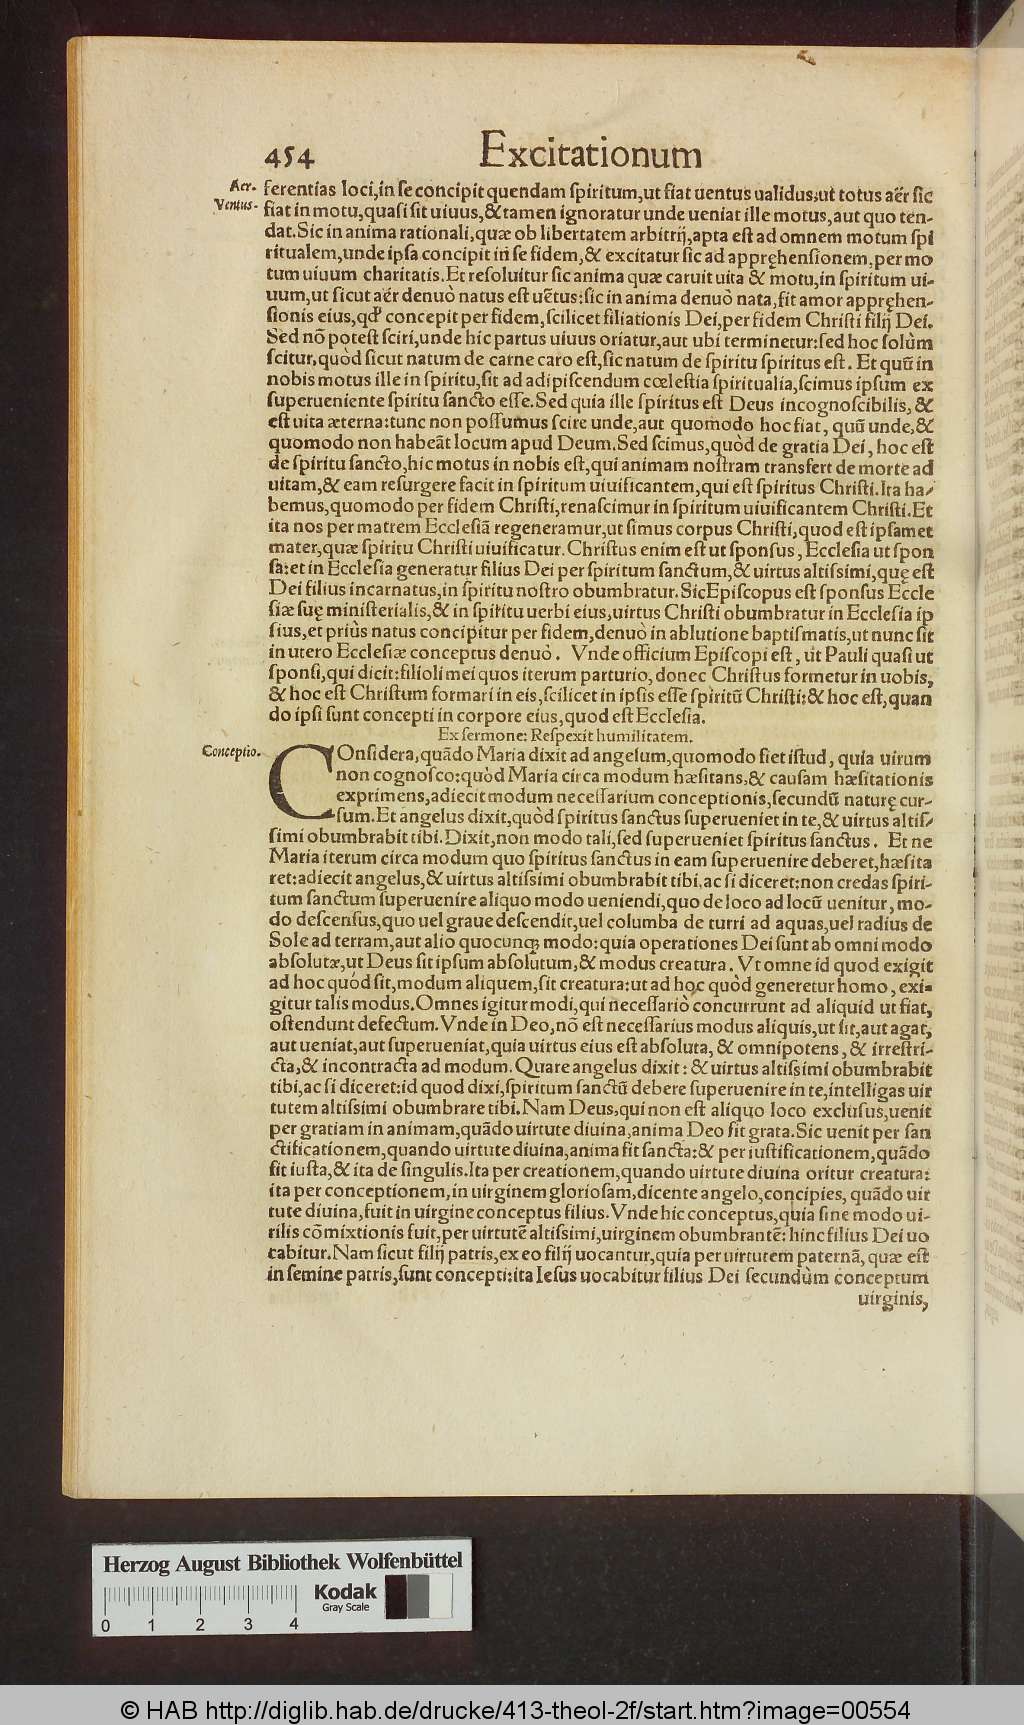 454 Excitationum
Aer. ferentias loci, in se concipit quendam spiritum, ut fiat uentus ualidus, ut totus aër sic
Ventus. fiat in motu, quasi sit uiuus, & tamen ignoratur unde ueniat ille motus, aut quo ten-
dat. Sic in anima rationali, quæ ob libertatem arbitrij, apta est ad omnem motum spi
ritualem, unde ipsa concipit in se fidem, & excitatur sic ad appręhensionem, per mo
tum uiuum charitatis. Et resoluitur sic anima quæ caruit uita & motu, in spiritum ui-
uum, ut sicut aër denuò natus est uẽtus: sic in anima denuò nata, fit amor appręhen-
sionis eius, qď concepit per fidem, scilicet filiationis Dei, per fidem Christi filij Dei.
Sed nõ potest sciri, unde hic partus uiuus oriatur, aut ubi terminetur: sed hoc solùm
scitur, quòd sicut natum de carne caro est, sic natum de spiritu spiritus est. Et quũ in
nobis motus ille in spiritu, sit ad adipiscendum cœlestia spiritualia, scimus ipsum ex
superueniente spiritu sancto esse. Sed quia ille spiritus est Deus incognoscibilis, &
est uita æterna: tunc non possumus scire unde, aut quomodo hoc fiat, quũ unde, &
quomodo non habeãt locum apud Deum. Sed scimus, quòd de gratia Dei, hoc est
de spiritu sancto, hic motus in nobis est, qui animam nostram transfert de morte ad
uitam, & eam resurgere facit in spiritum uiuificantem, qui est spiritus Christi. Ita ha-
bemus, quomodo per fidem Christi, renascimur in spiritum uiuificantem Christi. Et
ita nos per matrem Ecclesiã regeneramur, ut simus corpus Christi, quod est ipsamet
mater, quæ spiritu Christi uiuificatur. Christus enim est ut sponsus, Ecclesia ut spon
sa: et in Ecclesia generatur filius Dei per spiritum sanctum, & uirtus altissimi, quę est
Dei filius incarnatus, in spiritu nostro obumbratur. Sic Episcopus est sponsus Eccle
siæ suę ministerialis, & in spiritu uerbi eius, uirtus Christi obumbratur in Ecclesia ip
sius, et priùs natus concipitur per fidem, denuò in ablutione baptismatis, ut nunc sit
in utero Ecclesiæ conceptus denuò. Vnde officium Episcopi est, ut Pauli quasi ut
sponsi, qui dicit: filioli mei quos iterum parturio, donec Christus formetur in uobis,
& hoc est Christum formari in eis, scilicet in ipsis esse spiritũ Christi: & hoc est, quan
do ipsi sunt concepti in corpore eius, quod est Ecclesia.
Ex sermone: Respexit humilitatem.
Conceptio. COnsidera, quãdo Maria dixit ad angelum, quomodo fiet istud, quia uirum
non cognosco: quòd Maria circa modum hæsitans, & causam hæsitationis
exprimens, adiecit modum necessarium conceptionis, secundũ naturę cur-
sum. Et angelus dixit, quòd spiritus sanctus superueniet in te, & uirtus altis-
simi obumbrabit tibi. Dixit, non modo tali, sed superueniet spiritus sanctus. Et ne
Maria iterum circa modum quo spiritus sanctus in eam superuenire deberet, hæsita
ret: adiecit angelus, & uirtus altissimi obumbrabit tibi, ac si diceret: non credas spiri-
tum sanctum superuenire aliquo modo ueniendi, quo de loco ad locũ uenitur, mo-
do descensus, quo uel graue descendit, uel columba de turri ad aquas, uel radius de
Sole ad terram, aut alio quocunq; modo: quia operationes Dei sunt ab omni modo
absolutæ, ut Deus sit ipsum absolutum, & modus creatura. Vt omne id quod exigit
ad hoc quòd sit, modum aliquem, sit creatura: ut ad hoc quòd generetur homo, exi-
gitur talis modus. Omnes igitur modi, qui necessariò concurrunt ad aliquid ut fiat,
ostendunt defectum. Vnde in Deo, nõ est necessarius modus aliquis, ut sit, aut agat,
aut ueniat, aut superueniat, quia uirtus eius est absoluta, & omnipotens, & irrestri-
cta, & incontracta ad modum. Quare angelus dixit: & uirtus altissimi obumbrabit
tibi, ac si diceret: id quod dixi, spiritum sanctũ debere superuenire in te, intelligas uir
tutem altissimi obumbrare tibi. Nam Deus, qui non est aliquo loco exclusus, uenit
per gratiam in animam, quãdo uirtute diuina, anima Deo fit grata. Sic uenit per san
ctificationem, quando uirtute diuina, anima fit sancta: & per iustificationem, quãdo
fit iusta, & ita de singulis. Ita per creationem, quando uirtute diuina oritur creatura:
ita per conceptionem, in uirginem gloriosam, dicente angelo, concipies, quãdo uir
tute diuina, fuit in uirgine conceptus filius. Vnde hic conceptus, quia sine modo ui-
rilis cõmixtionis fuit, per uirtutẽ altissimi, uirginem obumbrantẽ: hinc filius Dei uo
cabitur. Nam sicut filij patris, ex eo filij uocantur, quia per uirtutem paternã, quæ est
in semine patris, sunt concepti: ita Iesus uocabitur filius Dei secundùm conceptum
uirginis,
Herzog August Bibliothek Wolfenbüttel
Kodak
Gray Scale
0 1 2 3 4
© HAB http://diglib.hab.de/drucke/413-theol-2f/start.htm?image=00554